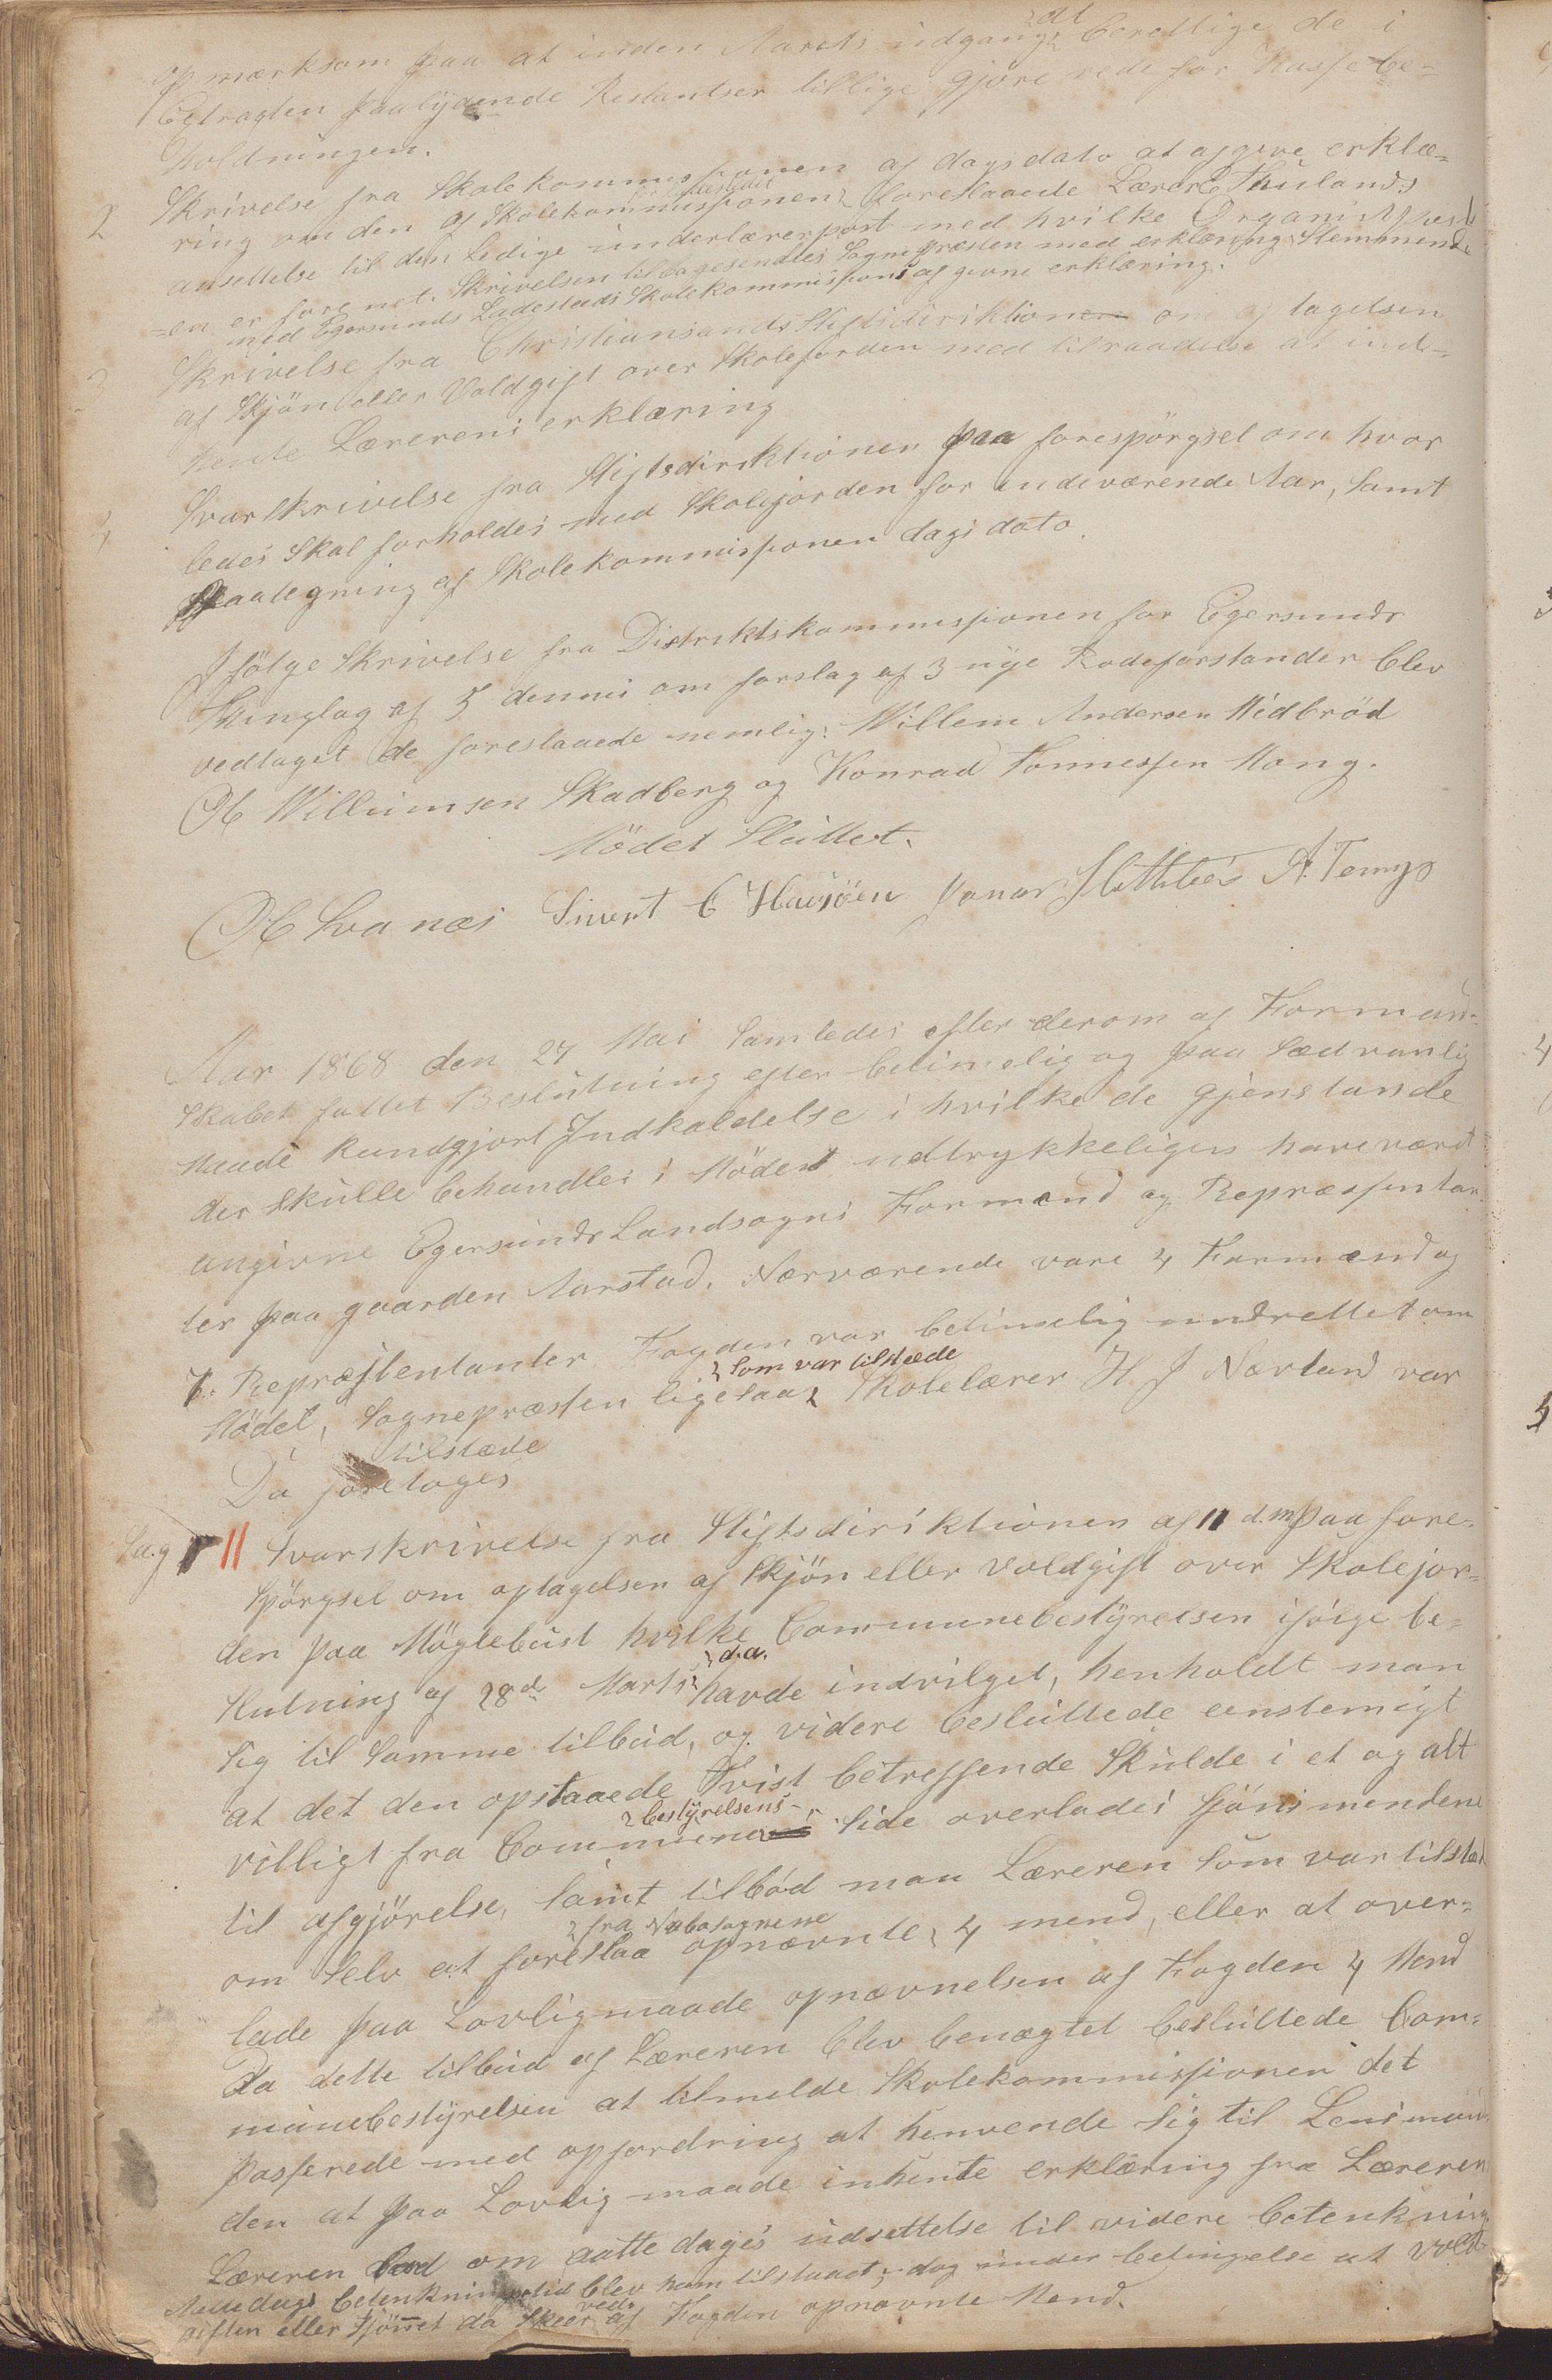 opmærksom paa at inden Aarets udgang at berettige de i
Betragten paalydende Restantser tillige gjøre rede for Kassebe-
holdningen.
2 Skrivelse fra Skolekommissionen af dagsdato at afgive erklæ-
ring om den af Skolekommissionen foreslaaede Lærer Thulands
ansettelse til den ledige underlærerpost med hvilke Organistpost-
en er forenet. Skrivelsen tilbagesendtes Sognepræsten med erklæring Stemmende
med Egersunds Ladesteds Skolekommissions afgivne erklæring.
3 Skrivelse fra Christiansands Stiftsdirektion om optagelsen
af Skjön eller Voldgift over Skolejorden med tilraadelse at ind-
hente Lærerens erklæring
4 Svarskrivelse fra Stiftsdirektionen paa forespörgsel om hvor
ledes Skal forholdes med Skolejorden for indeværende Aar, samt
Paategning af Skolekommissionen dags dato.
Ifölge Skrivelse fra Distriktskommissionen for Egersunds
Thinglag af 5 dennes om forslag af 3 nye Rodeforstander blev
vedtaget de foreslaaede nemlig: Willem Andersen Midbröd
Ol Willumsen Skadberg og Konrad Tønnessen Mong.
Mödet Sluttet.
Ol Svanæs Sivert C Havsöen Jonas Slettebö A. Tengs
Aar 1868 den 27 Mai Samledes efter derom af Forman-
skabet fattet Beslutning efter betimelig og paa Sædvanlig
Maade kundgjort Indkaldelse i hvilke de gjenstande
der skulle behandles i Mödet udtrykkeligen have været
angivne Egersunds Landsogns Formænd og Repræssentan-
ter paa gaarden Aarstad. Nærværende vare 4 Formænd og
7 Repræssentanter Fogden var betimelig undrettet om
Mödet, Sognepræsten ligesaa som var tilstæde Skolelærer H. J Nærland var
tilstæde
Da foretoges
Sag 1 Svarskrivelse fra Stiftsdirektionen af 11 d.m. paa fore-
spörgsel om optagelsen af Skjön eller voldgift over Skolejor-
den paa Möglebust hvilke Communebestyrelsen ifölge be-
slutning af 28de Marts d.a. havde indvilget, henholdt man
sig til samme tilbud, og videre besluttede eenstemigt
at det den opstaaede Tvist betreffende Skulde i et og alt
villigt fra Communebestyrelsens Side overlades Sjönsmendene
til afgjörelse, samt tilböd man Læreren som var tilstæd
om selv at foreslaa opnævnte fra Nabosognene 4 mend, eller at over-
lade paa Lovligmaade opnævnelsen af Fogden 4 Mend
Da dette tilbud af Læreren blev benægtet besluttede Com-
munebestyrelsen at tilmelde Skolekommissionen det
passerede med opfordring at henvende sig til Lensman-
den at paa Lovlig maade inhente erklæring fra Læreren
Læreren bad om aatte dages udsettelse til videre betenkning
Aatte dags betenkningstid blev ham tilstaaet, dog under betingelse at Vold-
giften eller Sjönnet da Skeer ved af Fogden opnævnte Mend.